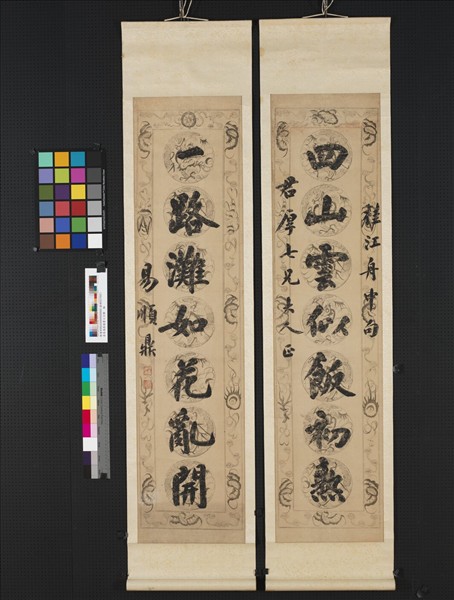 江舟中句
四山雲似飯初熟
君厚七兄大人正
一路灘如花亂開
易順鼎